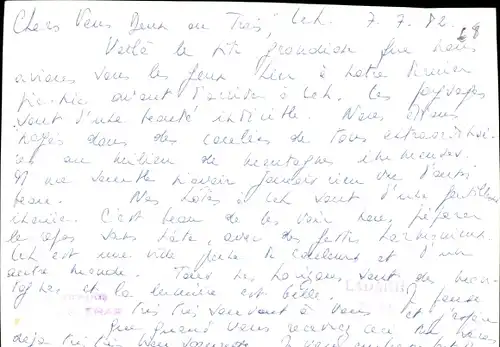 Chers Vous Deux ou Trois, Leh. 7.7.82.
Voilà le site grandiose que nous
avions sous les yeux hier à notre dernier
pic-nic avant d'arriver à Leh. Les paysages
sont d'une beauté infinie. Nous étions
nagés dans des couleurs de tons extraordinai-
res au milieu de montagnes immenses.
Il me semble n'avoir jamais rien vu d'aussi
beau. Nos hôtes à Leh sont d'une gentillesse
inouïe. C'est beau de les voir nous préparer
le repas sans hâte, avec des gestes harmonieux.
Leh est une ville pleine de couleurs et d'un
autre monde. Tous les horizons sont des mon-
tagnes et la lumière est belle. Je pense
LADAKH
très très souvent à vous et j'espère
que quand vous recevrez ceci vous serez
déjà très très bien